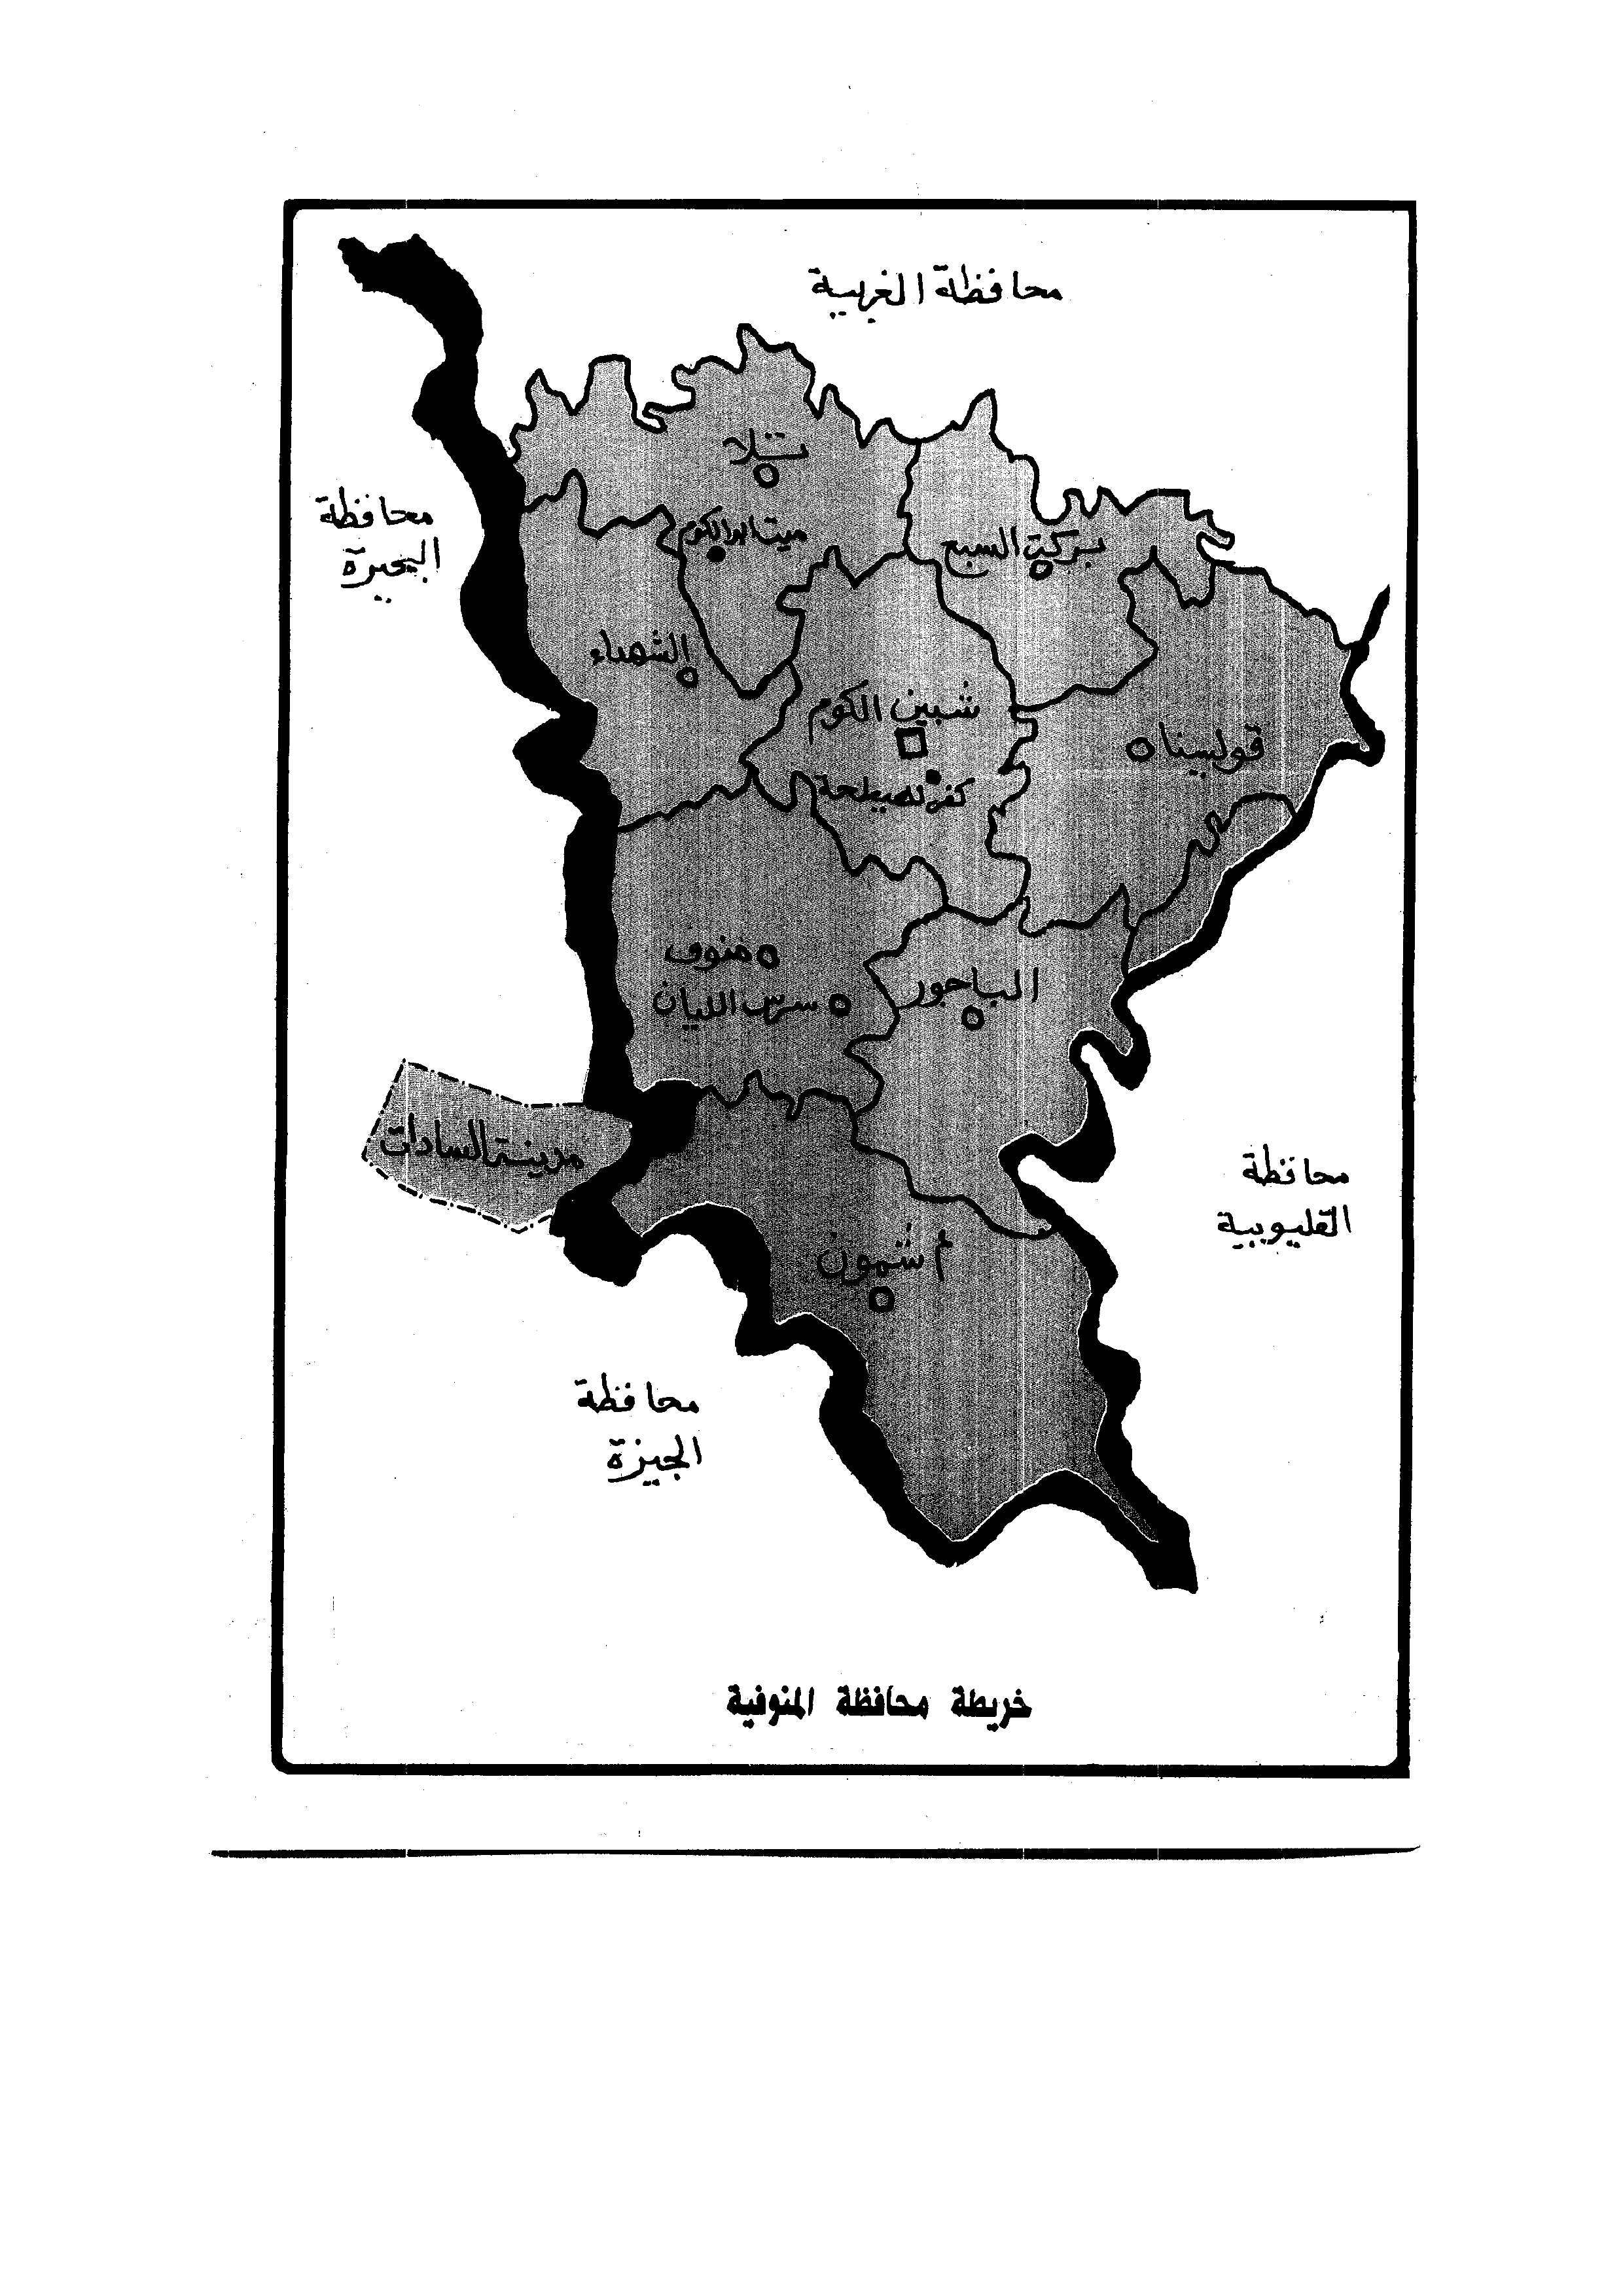 محافظة الغربية
تلا
محافظة
البحيرة
ميت ابو الكوم
بركة السبع
الشهداء
شبين الكوم
قويسنا
كفر المصيلحة
منوف
سرس الليان
الباجور
مدينة السادات
محافظة
القليوبية
أشمون
محافظة
الجيزة
خريطة محافظة المنوفية